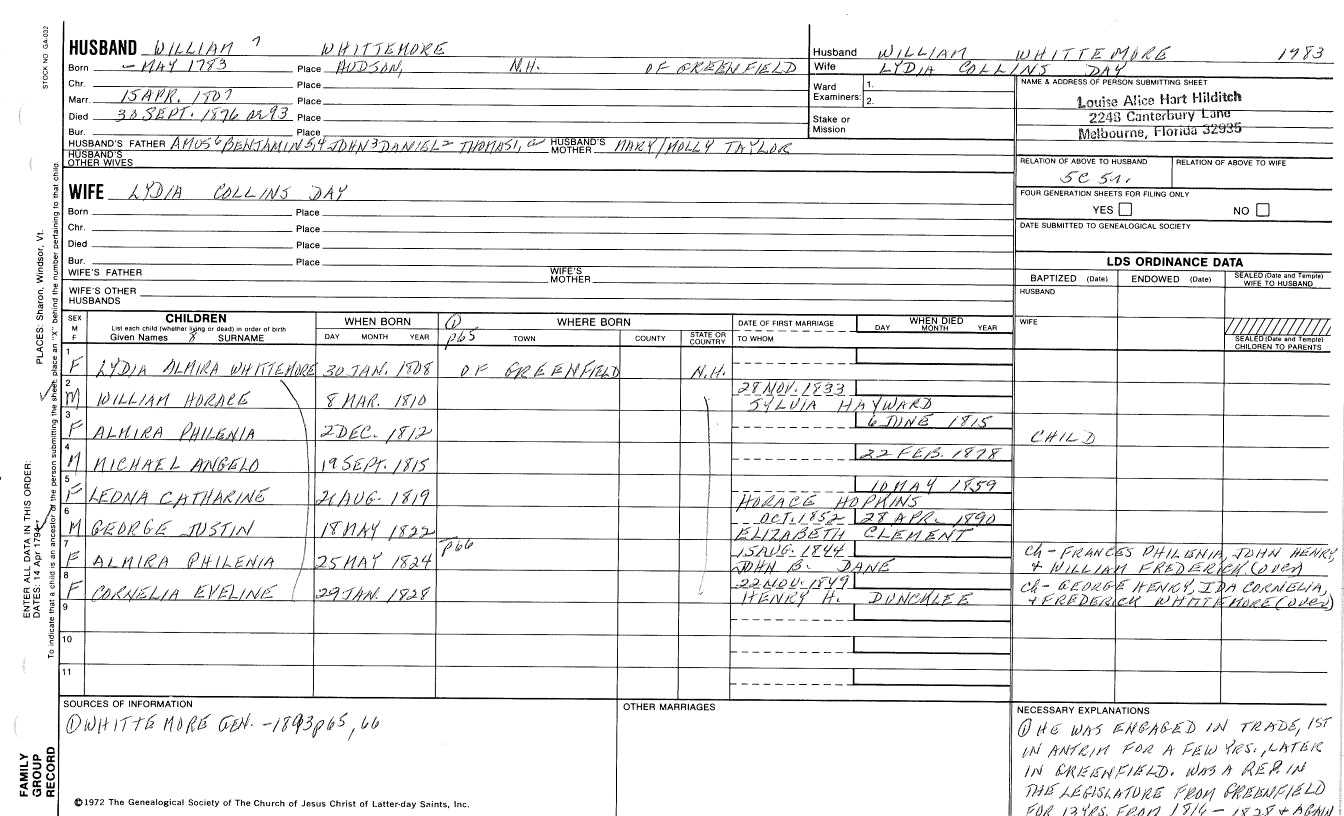 STOCK NO. GA-032
HUSBAND WILLIAM 7 WHITTEMORE
Born - MAY 1783 Place HUDSON, N.H. OF GREENFIELD
Chr. Place
Marr. 15 APR. 1807 Place
Died 30 SEPT. 1876 OR 93 Place
Bur. Place
HUSBAND'S FATHER AMOS 6 BENJAMIN 5 4 JOHN 3 DANIEL 2 THOMAS 1, HUSBAND'S MOTHER MARY/MOLLY TAYLOR
HUSBAND'S OTHER WIVES
Husband WILLIAM WHITTEMORE 1783
Wife LYDIA COLLINS DAY
Ward Examiners: 1.
2.
Stake or Mission
NAME & ADDRESS OF PERSON SUBMITTING SHEET
Louise Alice Hart Hilditch
2248 Canterbury Lane
Melbourne, Florida 32935
RELATION OF ABOVE TO HUSBAND RELATION OF ABOVE TO WIFE
5C 5r.
FOUR GENERATION SHEETS FOR FILING ONLY
YES NO
DATE SUBMITTED TO GENEALOGICAL SOCIETY
WIFE LYDIA COLLINS DAY
Born Place
Chr. Place
Died Place
Bur. Place
WIFE'S FATHER WIFE'S MOTHER
WIFE'S OTHER HUSBANDS
LDS ORDINANCE DATA
BAPTIZED (Date) ENDOWED (Date) SEALED (Date and Temple) WIFE TO HUSBAND
HUSBAND
WIFE
SEALED (Date and Temple) CHILDREN TO PARENTS
SEX M F CHILDREN WHEN BORN WHERE BORN DATE OF FIRST MARRIAGE WHEN DIED
List each child (whether living or dead) in order of birth
Given Names 8 SURNAME DAY MONTH YEAR ① p65 TOWN COUNTY STATE OR COUNTRY TO WHOM DAY MONTH YEAR
1 F LYDIA ALMIRA WHITTEMORE 30 JAN. 1808 OF GREENFIELD N.H.
2 M WILLIAM HORACE 8 MAR. 1810 28 NOV. 1833
SYLVIA HAYWARD
3 F ALMIRA PHILENIA 2 DEC. 1812 6 JUNE 1815 CHILD
4 M MICHAEL ANGELO 19 SEPT. 1815 22 FEB. 1878
5 F LEONA CATHARINE 21 AUG. 1819 10 MAY 1859
HORACE HOPKINS
6 M GEORGE JUSTIN 18 MAY 1822 OCT. 1852 28 APR. 1890
ELIZABETH CLEMENT
7 F ALMIRA PHILENIA 25 MAY 1824 p66 15 AUG. 1844 Ch - FRANCES PHILENIA, JOHN HENRY,
JOHN B. DANE + WILLIAM FREDERICK (over)
8 F CORNELIA EVELINE 29 JAN. 1828 22 NOV. 1849 Ch - GEORGE HENRY, IDA CORNELIA,
HENRY H. DUNCKLEE + FREDERICK WHITTEMORE (over)
9
10
11
SOURCES OF INFORMATION
① WHITTEMORE GEN. - 1893 p65, 66
OTHER MARRIAGES
NECESSARY EXPLANATIONS
① HE WAS ENGAGED IN TRADE, 1ST
IN ANTRIM FOR A FEW YRS., LATER
IN GREENFIELD. WAS A REP. IN
THE LEGISLATURE FROM GREENFIELD
FOR 12 YRS. FROM 1816 - 1828 + AGAIN
©1972 The Genealogical Society of The Church of Jesus Christ of Latter-day Saints, Inc.
FAMILY GROUP RECORD
ENTER ALL DATA IN THIS ORDER:
DATES: 14 Apr 1794
PLACES: Sharon, Windsor, Vt.
To indicate that a child is an ancestor of the person submitting the sheet, place an "X" behind the number pertaining to that child.